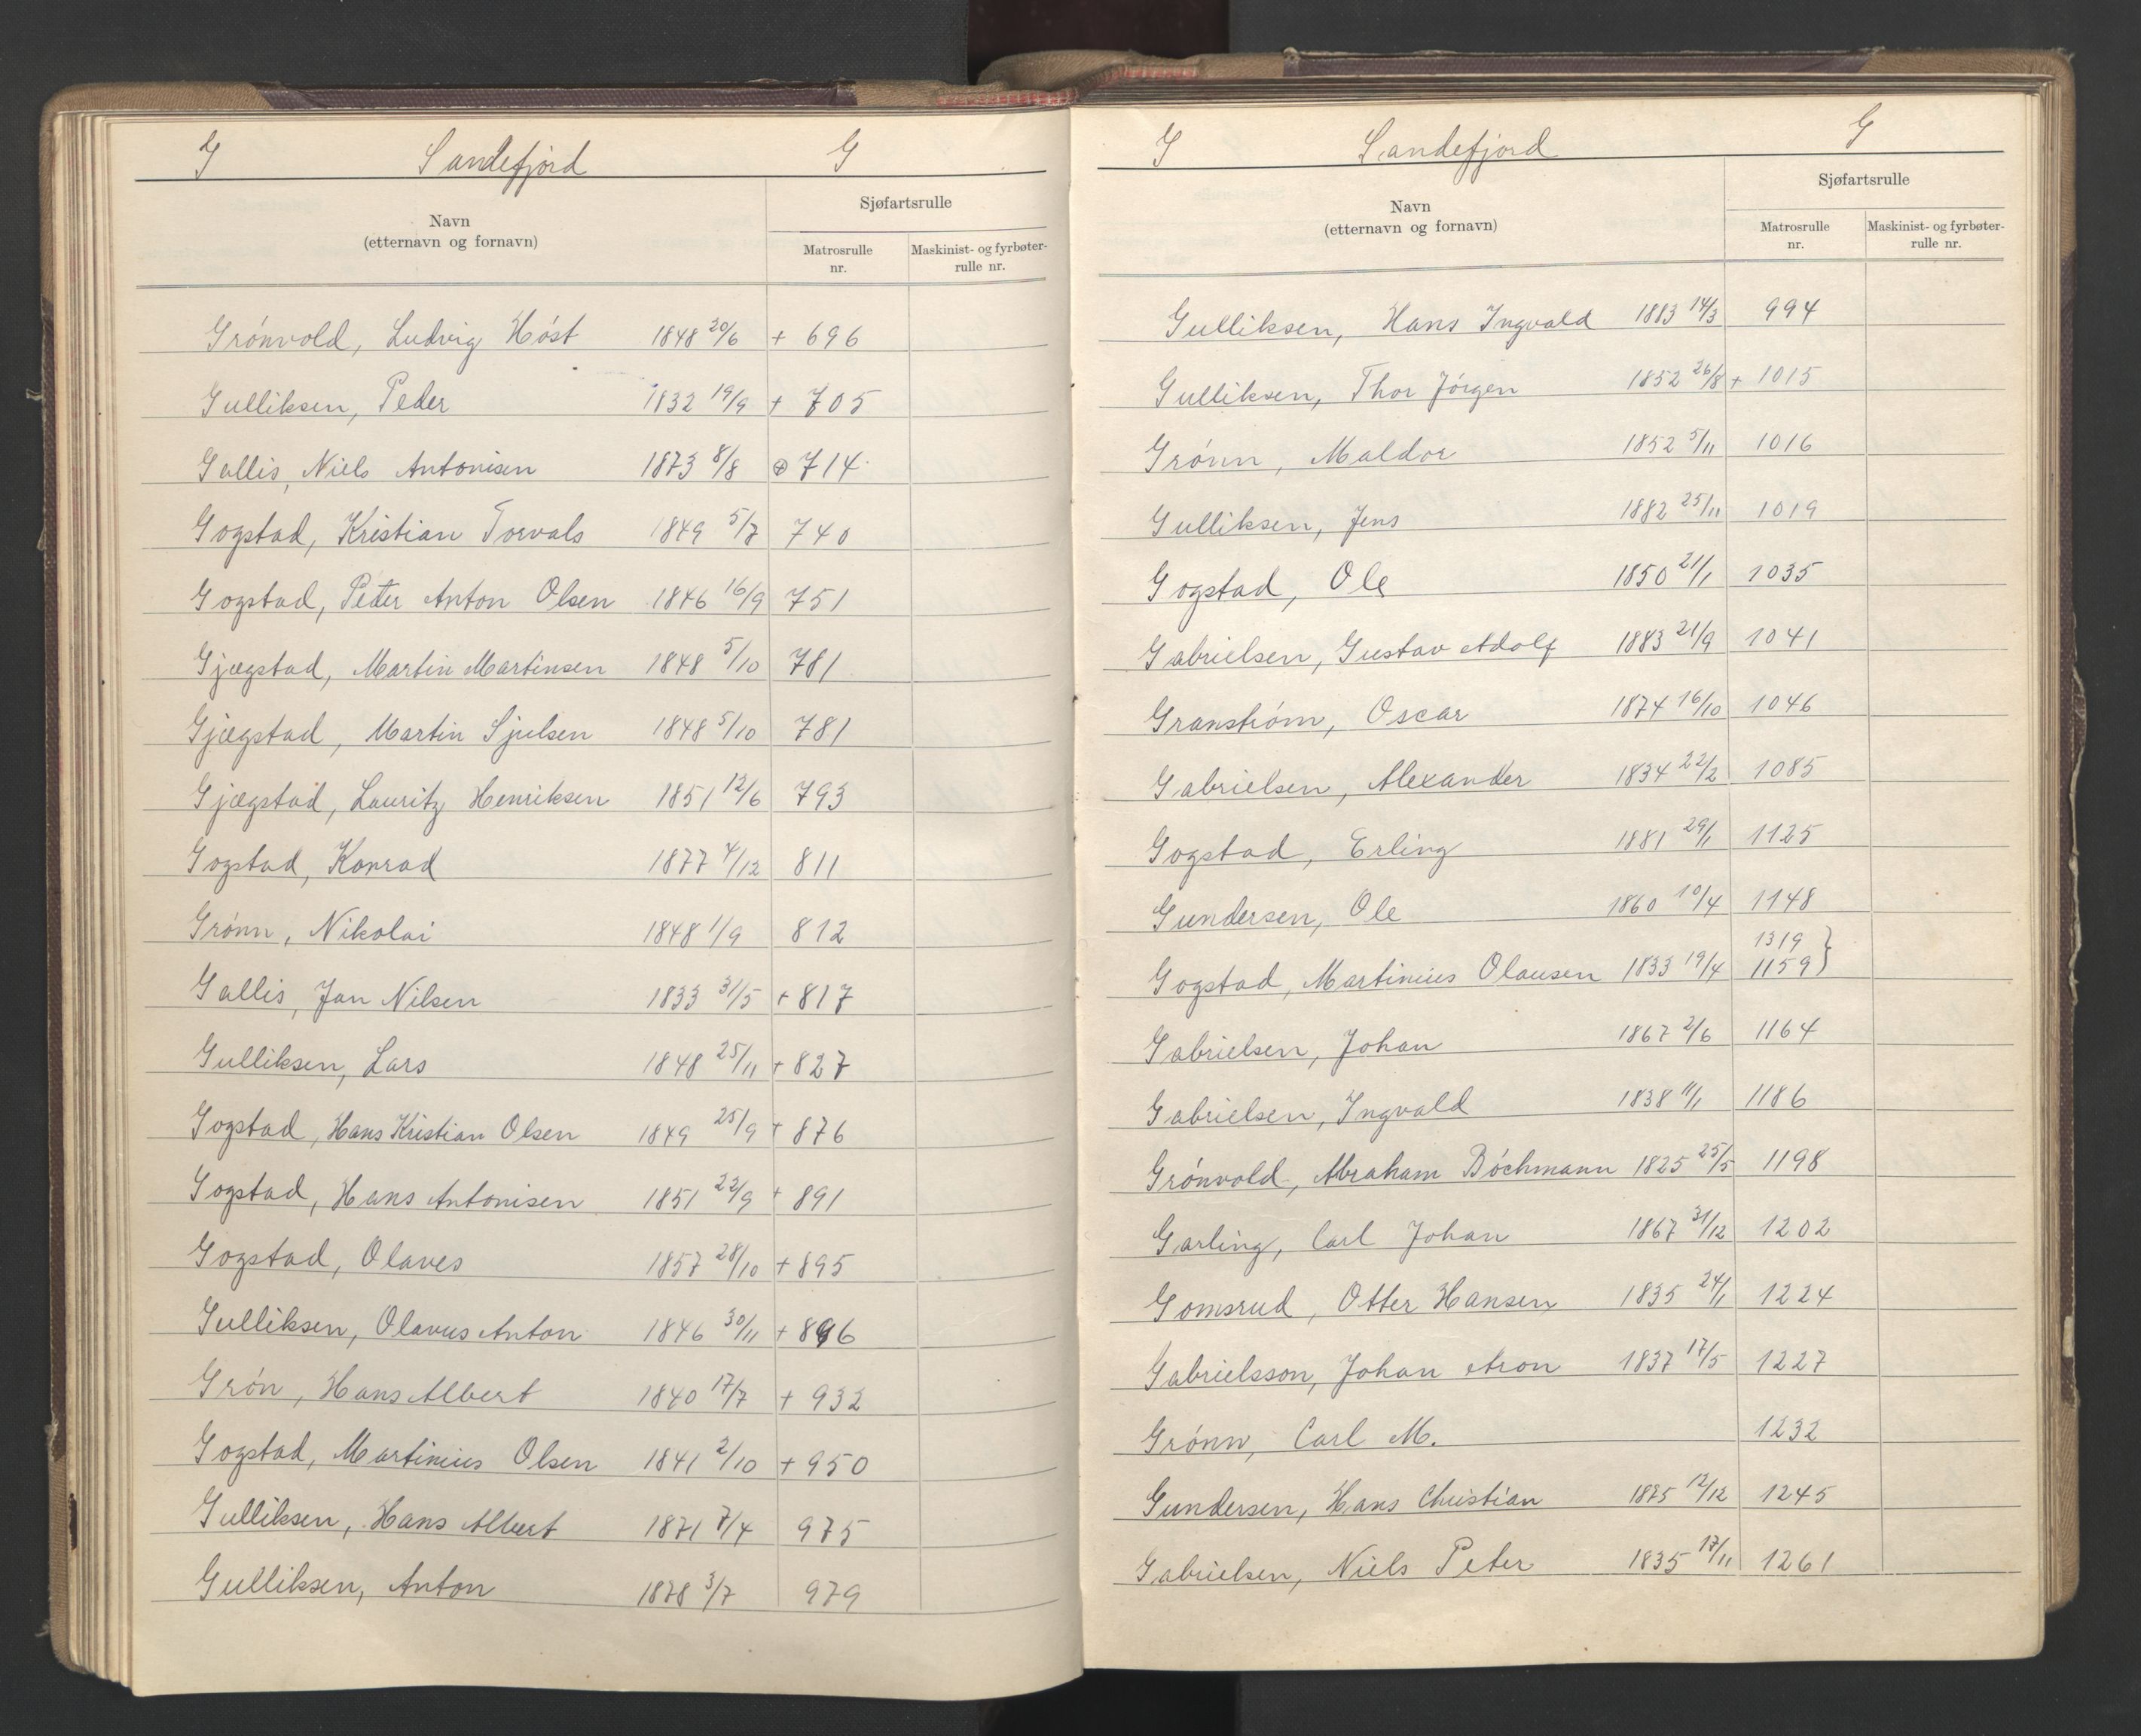 G Sandefjord G
Navn
(etternavn og fornavn)
Sjøfartsrulle
Matrosrulle
nr.
Maskinist- og fyrbøter-
rulle nr.
Grónvold, Ludvig Hóst 1848 20/6 + 696
Gulliksen, Peder 1832 19/9 + 705
Gallis, Niels Antonisen 1873 8/8 ⊕ 714
Gogstad, Kristian Torvals 1849 5/7 740
Gogstad, Peter Anton Olsen 1846 16/9 751
Gjægstad, Martin Martinsen 1848 5/10 781
Gjægstad, Martin Sjulsen 1848 5/10 781
Gjægstad, Lauritz Henriksen 1851 12/6 793
Gogstad, Konrad 1877 4/12 811
Grónn, Nikolai 1848 1/9 812
Gallis, Jan Nilsen 1833 31/5 + 817
Gulliksen, Lars 1848 25/11 + 827
Gogstad, Hans Kristian Olsen 1849 25/9 + 876
Gogstad, Hans Antonisen 1851 22/9 + 891
Gogstad, Olaves 1857 28/10 + 895
Gulliksen, Olavus Anton 1846 30/11 + 896
Grón, Hans Albert 1840 17/7 + 932
Gogstad, Martinius Olsen 1841 2/10 + 950
Gulliksen, Hans Albert 1871 7/4 975
Gulliksen, Anton 1878 3/7 979
G Sandefjord G
Navn
(etternavn og fornavn)
Sjøfartsrulle
Matrosrulle
nr.
Maskinist- og fyrbøter-
rulle nr.
Gulliksen, Hans Ingvald 1883 14/3 994
Gulliksen, Thor Jórgen 1852 26/8 + 1015
Grónn, Maldor 1852 5/11 1016
Gulliksen, Jens 1882 25/11 1019
Gogstad, Ole 1850 21/1 1035
Gabrielsen, Gustav Adolf 1883 21/9 1041
Granstróm, Oscar 1874 16/10 1046
Gabrielsen, Alexander 1834 22/2 1085
Gogstad, Erling 1881 29/1 1125
Gundersen, Ole 1860 10/4 1148
1319 }
Gogstad, Martinius Olausen 1833 19/4 1159
Gabrielsen, Johan 1867 2/6 1164
Gabrielsen, Ingvald 1838 11/1 1186
Grónvold, Abraham Bóchmann 1825 25/5 1198
Garling, Carl Johan 1867 31/12 1202
Gomsrud, Otter Hansen 1835 24/1 1224
Gabrielsson, Johan Aron 1837 17/5 1227
Grónn, Carl M. 1232
Gundersen, Hans Christian 1875 12/12 1245
Gabrielsen, Niels Peter 1835 17/11 1261